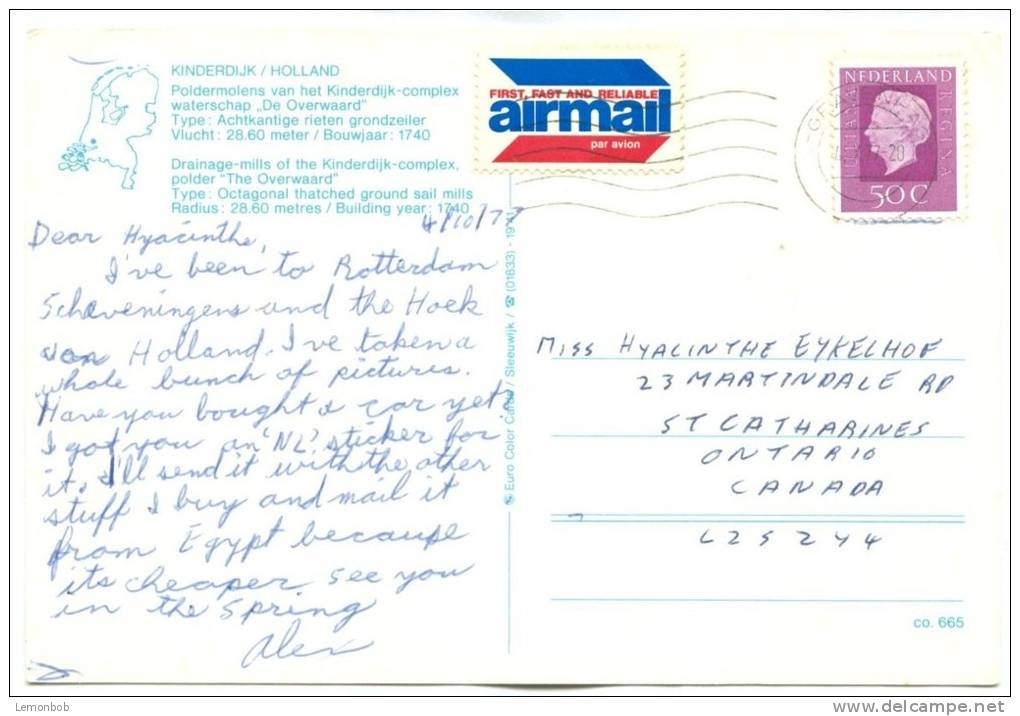 KINDERDIJK / HOLLAND
Poldermolens van het Kinderdijk-complex
waterschap „De Overwaard"
Type: Achtkantige rieten grondzeiler
Vlucht: 28.60 meter / Bouwjaar: 1740
Drainage-mills of the Kinderdijk-complex,
polder "The Overwaard"
Type: Octagonal thatched ground sail mills
Radius: 28.60 metres / Building year: 1740
4/10/77
Dear Hyacinthe,
I've been to Rotterdam
Scheveningens and the Hoek
van Holland. I've taken a
whole bunch of pictures.
Have you bought a car yet?
I got you an 'NL' sticker for
it, I'll send it with the other
stuff I buy and mail it
from Egypt because
its cheaper. See you
in the Spring
Alex
Euro Color Cards / Sleeuwijk / ☎ (01833) -
FIRST, FAST AND RELIABLE
airmail
par avion
NEDERLAND
JULIANA REGINA
50C
MISS HYACINTHE EYKELHOF
23 MARTINDALE RD
ST CATHARINES
ONTARIO
CANADA
L2S 2Y4
co. 665
Lemonbob
www.delcampe.net